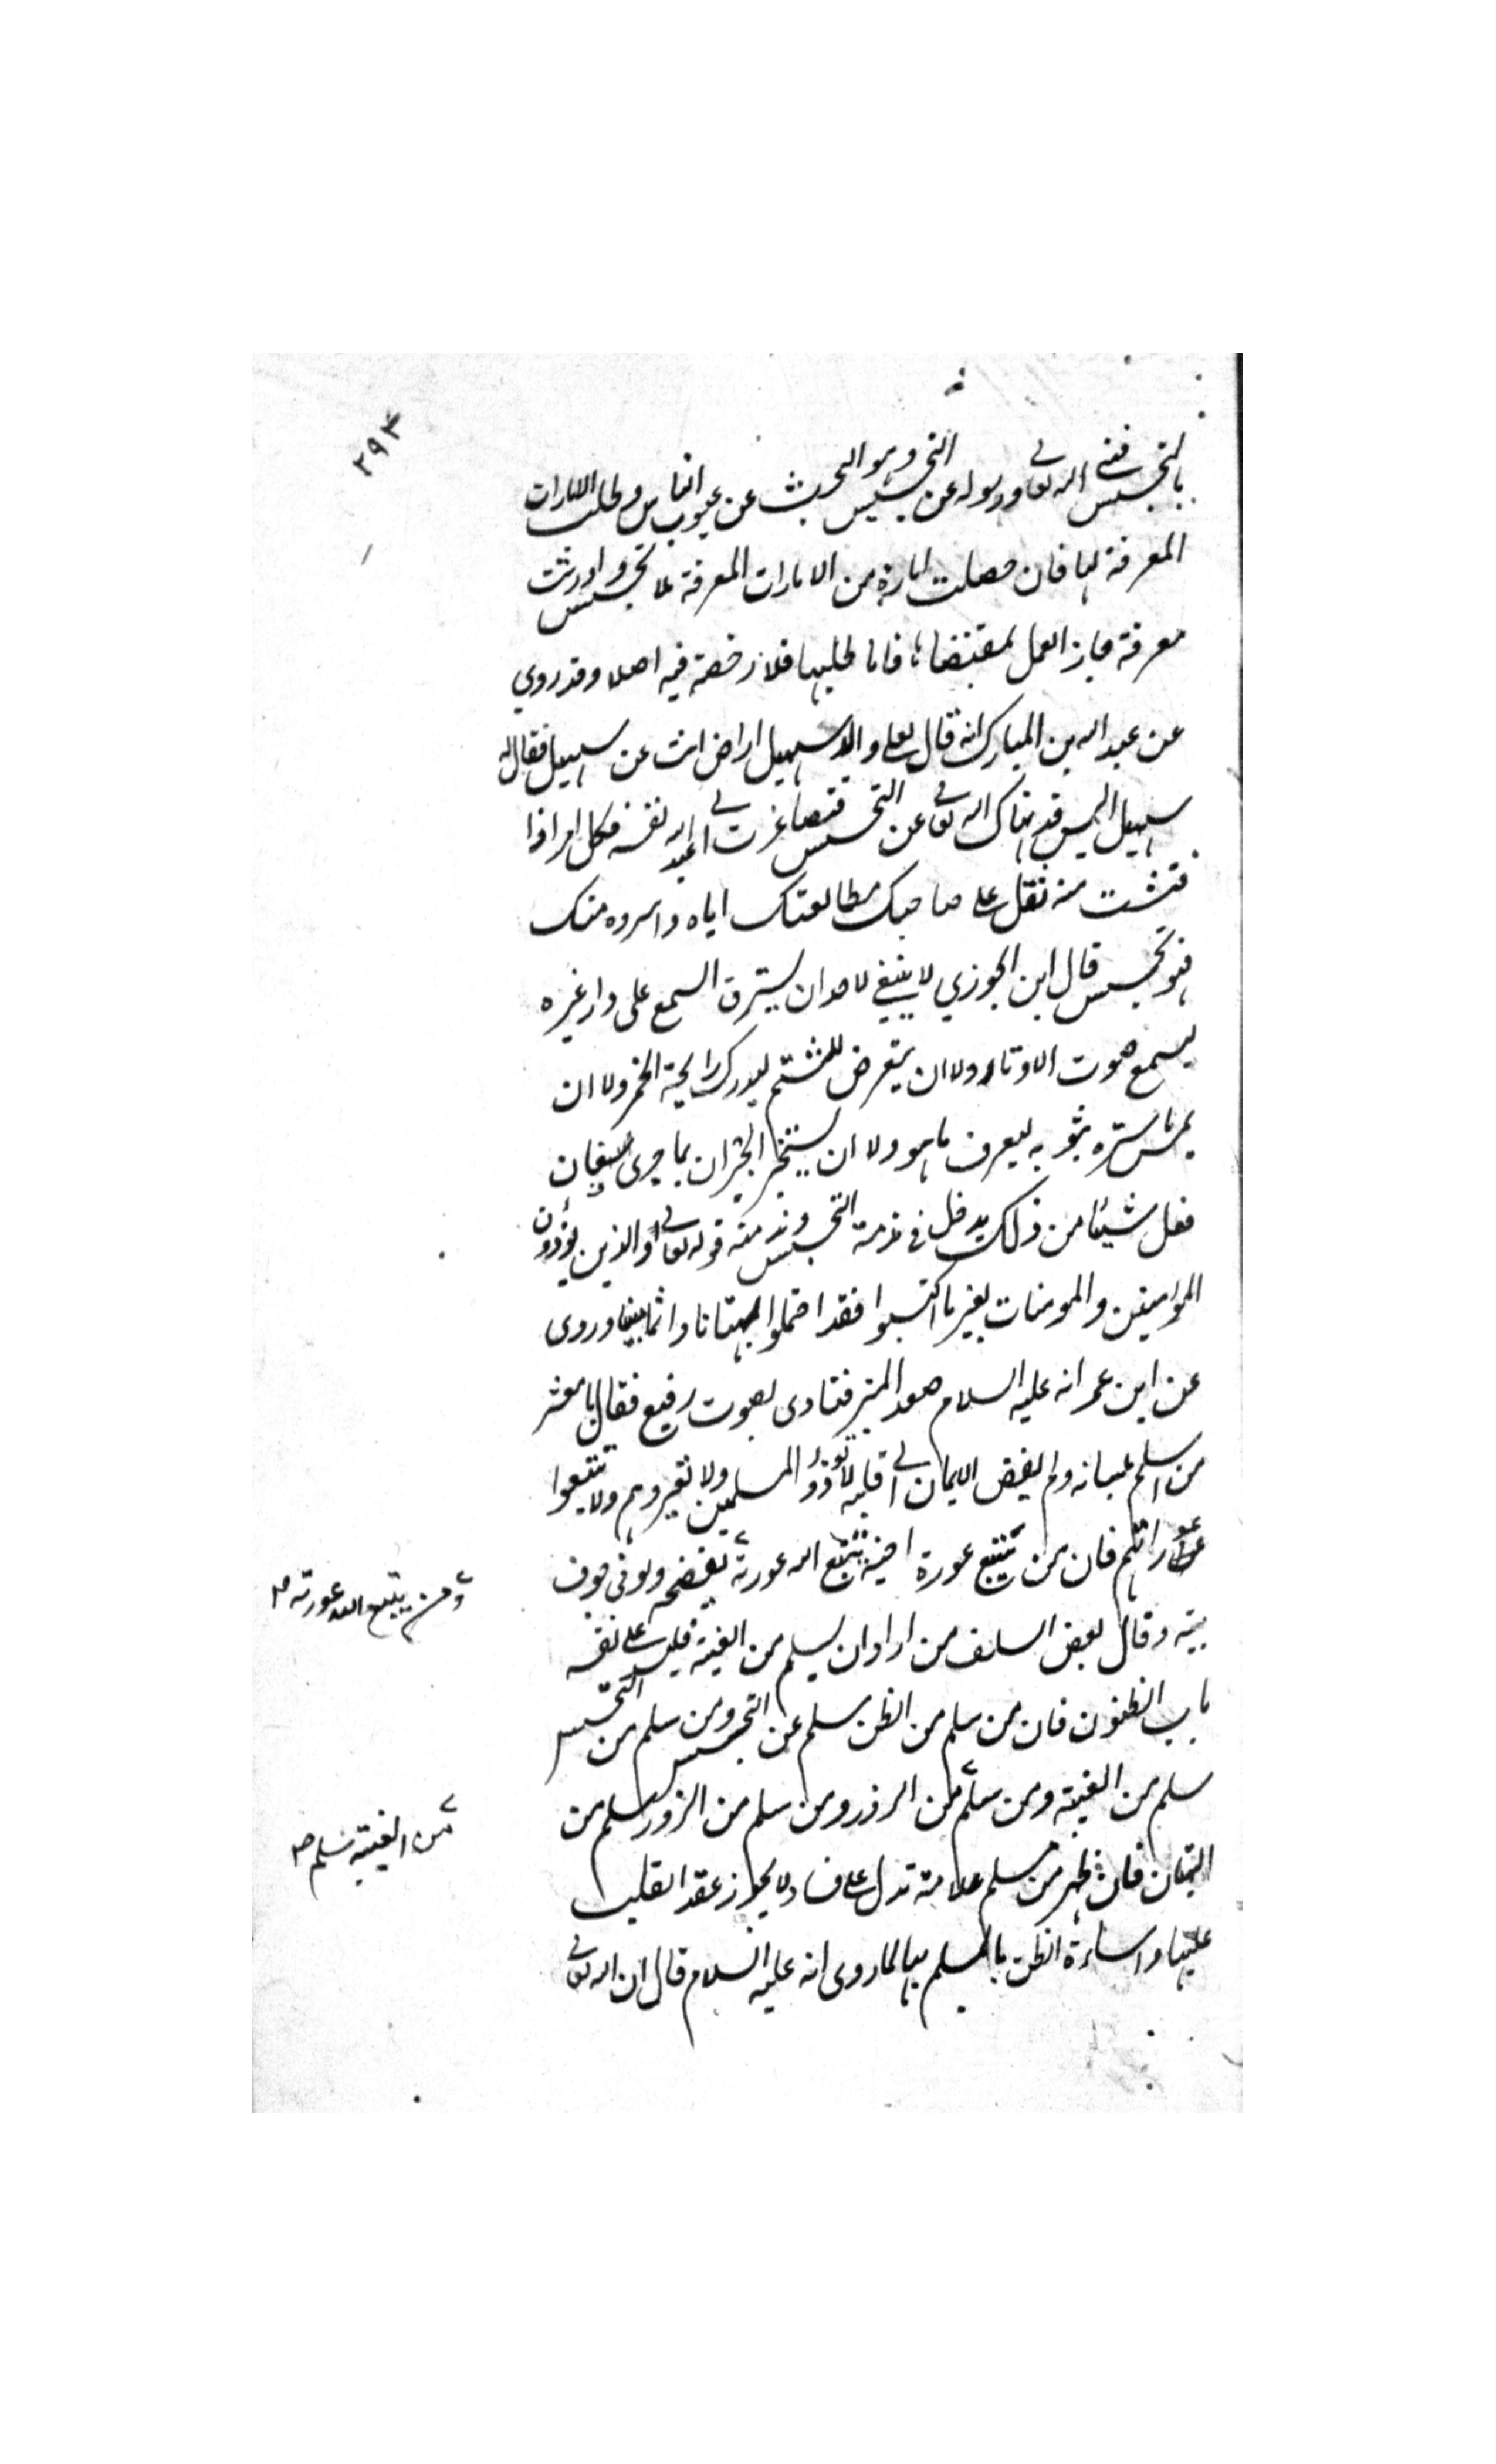 ٢٩٣
بالتجسس فنهى الله تعالى ورسوله عن التجسس وهو البحث عن عيوب الناس وطلب الامارات
المعرفة لها فان حصلت امارة من الامارات المعرفة بلا تجسس واورثت
معرفة جاز العمل بمقتضاها فاما طلبها فلا رخصة فيه اصلا وقد روي
عن عبد الله بن المبارك انه قال لعلى والد سهيل اراض انت عن سهيل فقال له
سهيل اليس قد نهاك الله تعالى عن التجسس فتصاغرت الى عبد الله نفسه فكل امر اذا
فتشت منه ثقل على صاحبك مطالعتك اياه واسروه منك
فهو تجسس قال ابن الجوزي لا ينبغي لاحد ان يسترق السمع على دار غيره
ليسمع صوت الاوتار ولا ان يتعرض للشتم ليدرك رايحة الخمر ولا ان
يمس ما ستره بثوبه ليعرف ما هو ولا ان يستخبر الجيران بما جرى فان
فعل شيئا من ذلك يدخل في مذمة التجسس ومذمته قوله تعالى والذين يؤذون
المؤمنين والمومنات بغير ما اكتسبوا فقد احتملوا بهتانا واثما مبينا وروى
عن ابن عمر انه عليه السلام صعد المنبر فنادى بصوت رفيع فقال يا معشر
من اسلم بلسانه ولم يفض الايمان الى قلبه لا تؤذوا المسلمين ولا تعيروهم ولا تتبعوا
عوراتهم فان من تتبع عورة اخيه تتبع الله عورته يفضحه ولو في جوف
ومن يتبع الله عورته صح
بيته وقال بعض السلف من اراد ان يسلم من الغيبة فليسد على نفسه
باب الظنون فان من سلم من الظن سلم عن التجسس ومن سلم من التجسس
سلم من الغيبة ومن سلم من الزور ومن سلم من الزور سلم من
من الغيبة سلم صح
البهتان فان ظهر من مسلم علامة تدل على فساد لا يجوز عقد القلب
عليها واساءة الظن بالمسلم بها لما روى انه عليه السلام قال ان الله تعالى